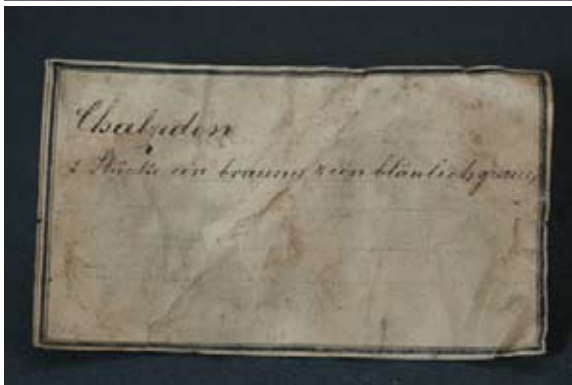 Chalzedon
2 Stücke ein braunes & ein bläulichgraues